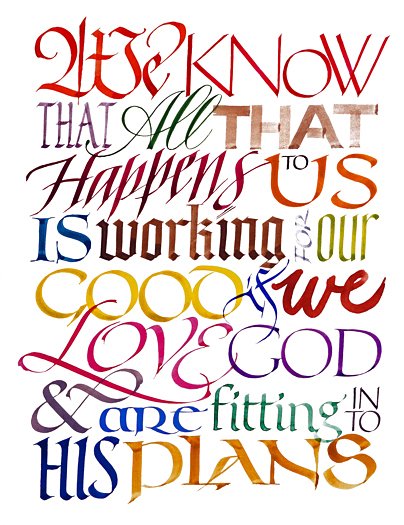 We KNOW
THAT All THAT
Happens TO US
IS working FOR our
GOOD if we
LOVE GOD
& are fitting INTO
HIS PLANS